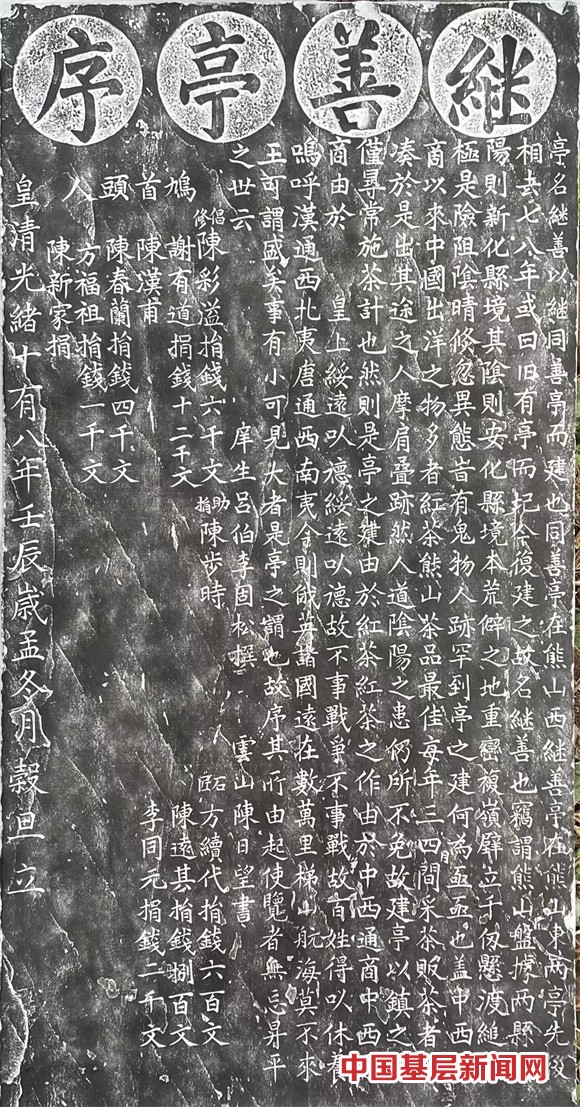 继善亭序
亭名継善以継同善亭而建也同善亭在熊山西継善亭在熊山東两亭先後
相去七八年或曰旧有亭而圮今復建之故名継善也竊謂熊山盤據两縣
陽則新化縣境其陰則安化縣境本荒僻之地重巒複嶺壁立千仞懸渡縋
極是險阻陰晴倐忽異態昔有鬼物人跡罕到亭之建何為亟亟也盖中西
商以來中國出洋之物多者紅茶熊山茶品最佳每年三四間采茶販茶者
凑於是出其途之人摩肩叠跡然人道陰陽之患仍所不免故建亭以鎮之
僅尋常施茶計也然則是亭之建由於紅茶紅茶之作由於中西通商中西
商由於 皇上綏遠以德綏遠以德故不事戰爭不事戰故百姓得以休養
嗚呼漢通西北夷唐通西南夷今則俄英諸國遠在數萬里梯山航海莫不來
王可謂盛矣事有小可見大者是亭之謂也故序其所由起使覽者無忘昇平
之世云 庠生吕伯李固松撰 雲山陳日望書
倡修陳彩溢捐錢六千文 助捐陳步時 石匠方續代捐錢六百文
鳩 謝有道捐錢十二千文 陳遠其捐錢捌百文
首 陳漢甫 李同元捐錢二千文
頭 陳春蘭捐錢四千文
人 方福祖捐錢一千文
陳新家捐
皇清光緒十有八年壬辰歲孟冬月穀旦立
中国基层新闻网